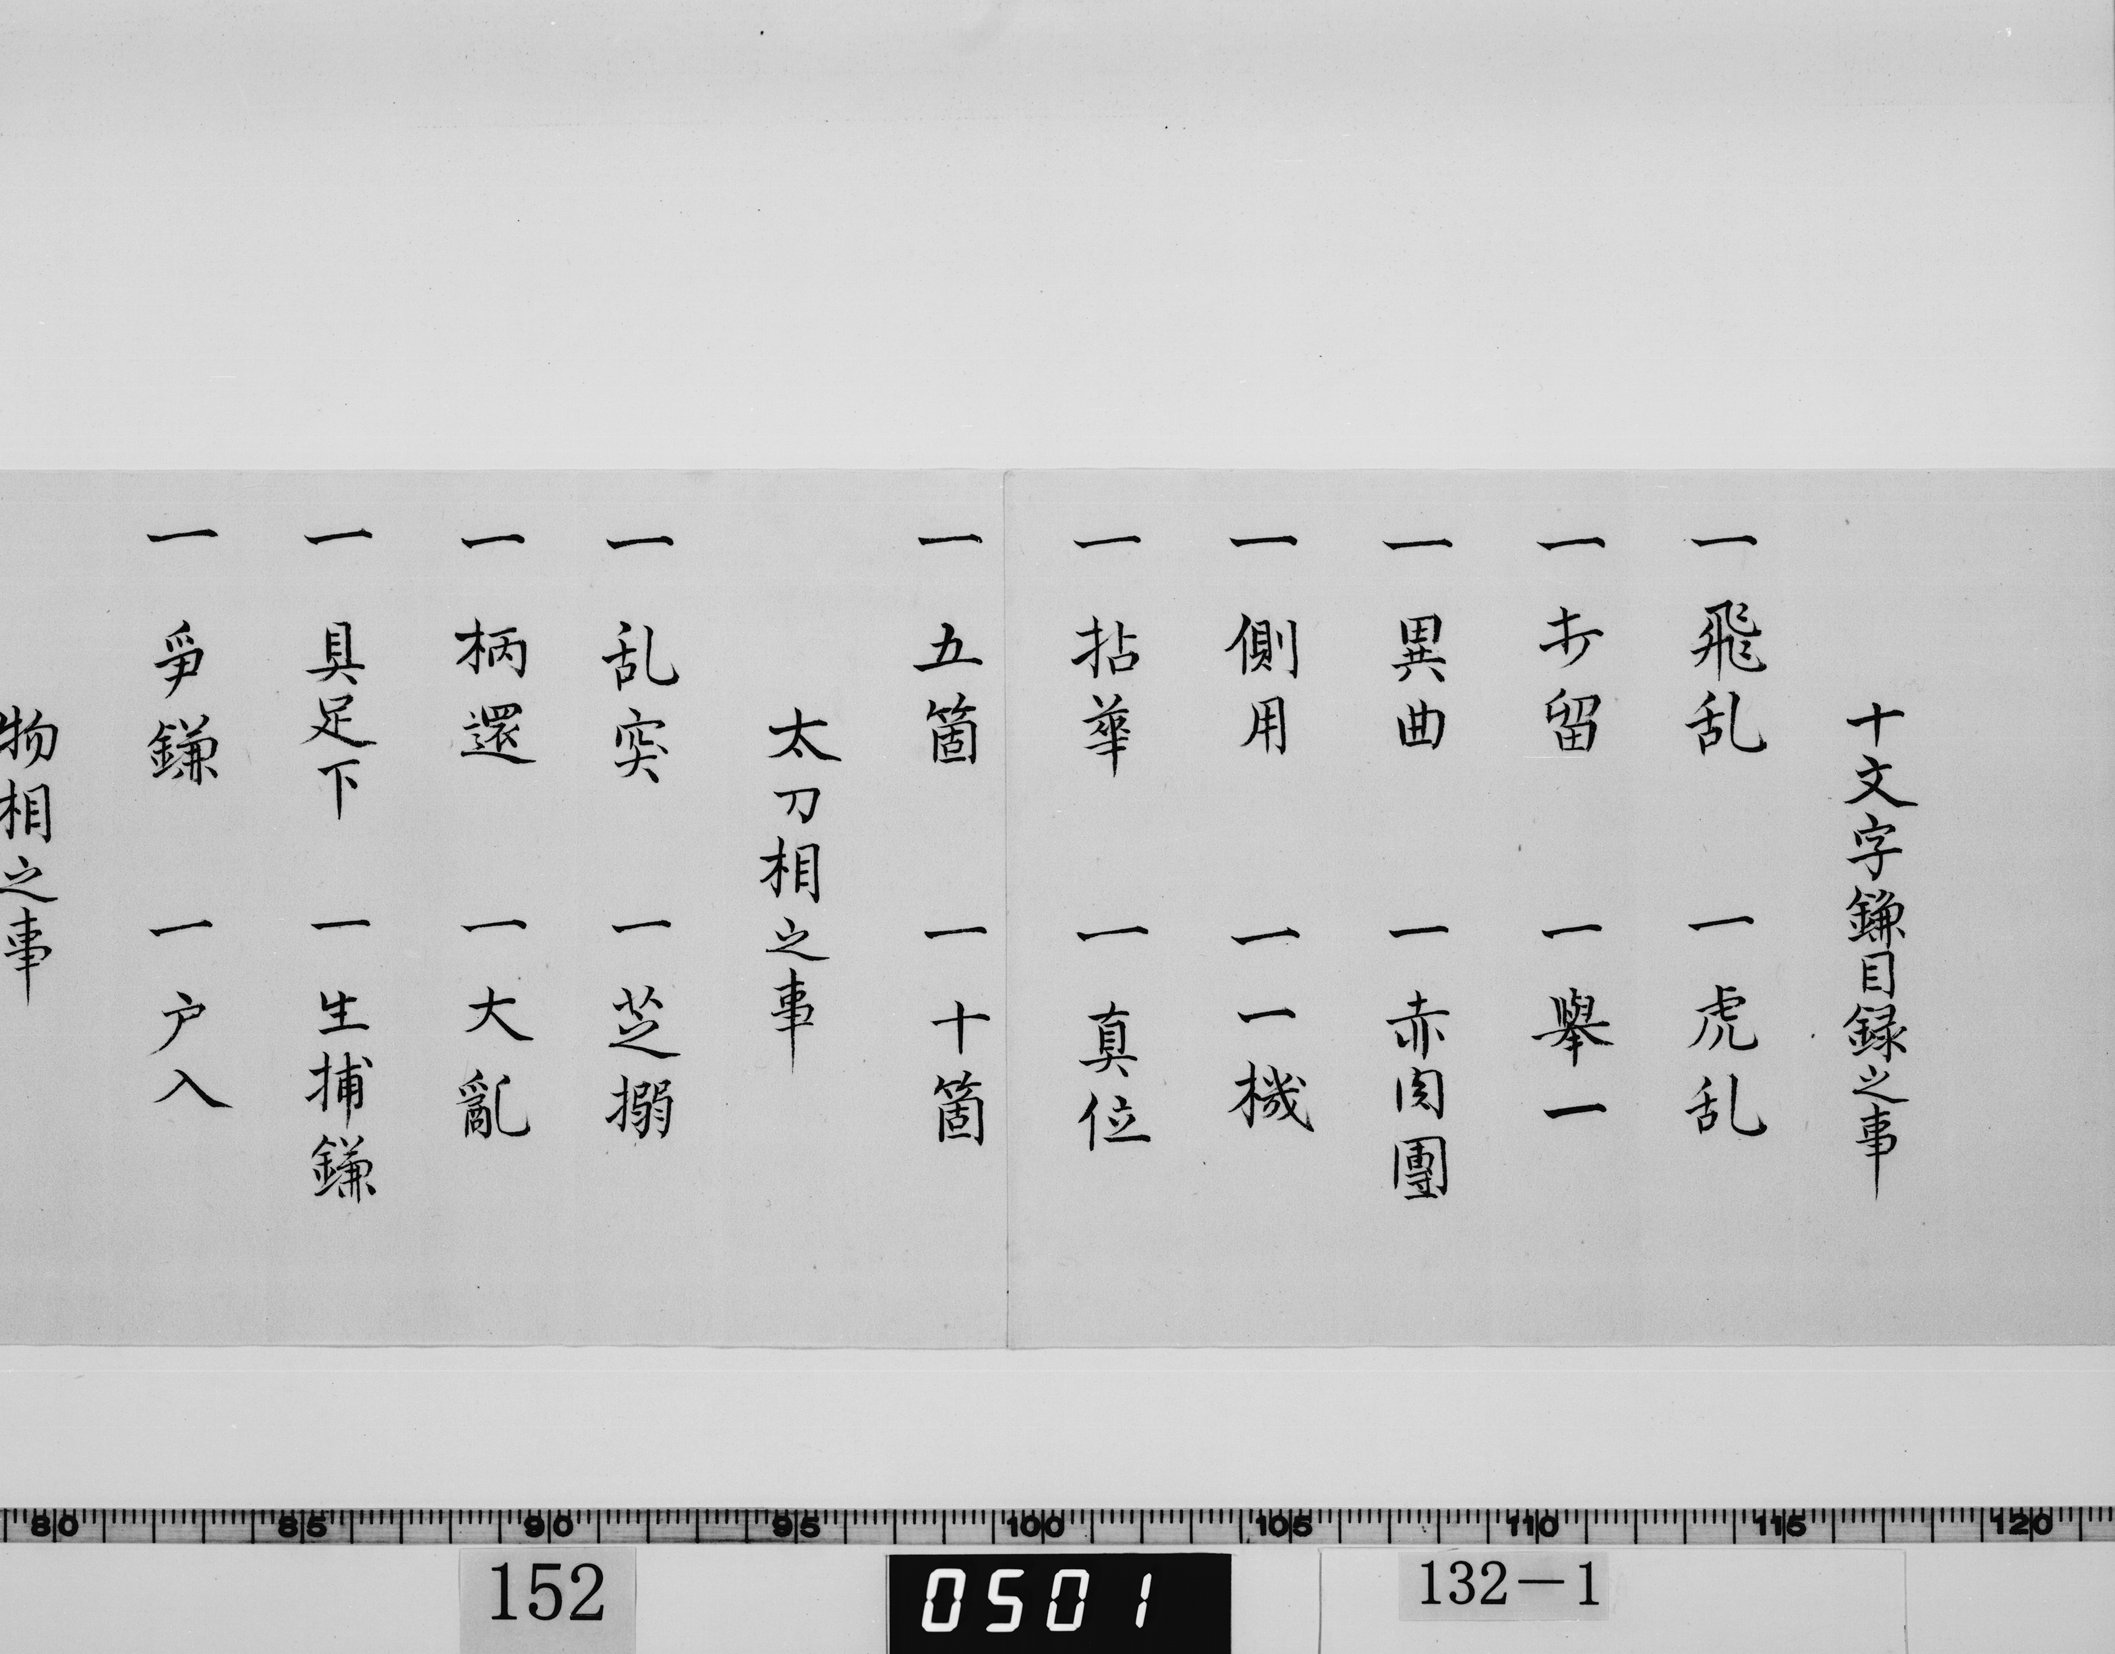 十文字鎌目録之事
一飛乱 一虎乱
一歩留 一擧一
一異曲 一赤肉團
一側用 一一機
一拈華 一真位
一五箇 一十箇
太刀相之事
一乱突 一芝搦
一柄還 一大亂
一具足下 一生捕鎌
一爭鎌 一戸入
物相之事
80 85 90 95 100 105 110 115 120
152
0501
132-1